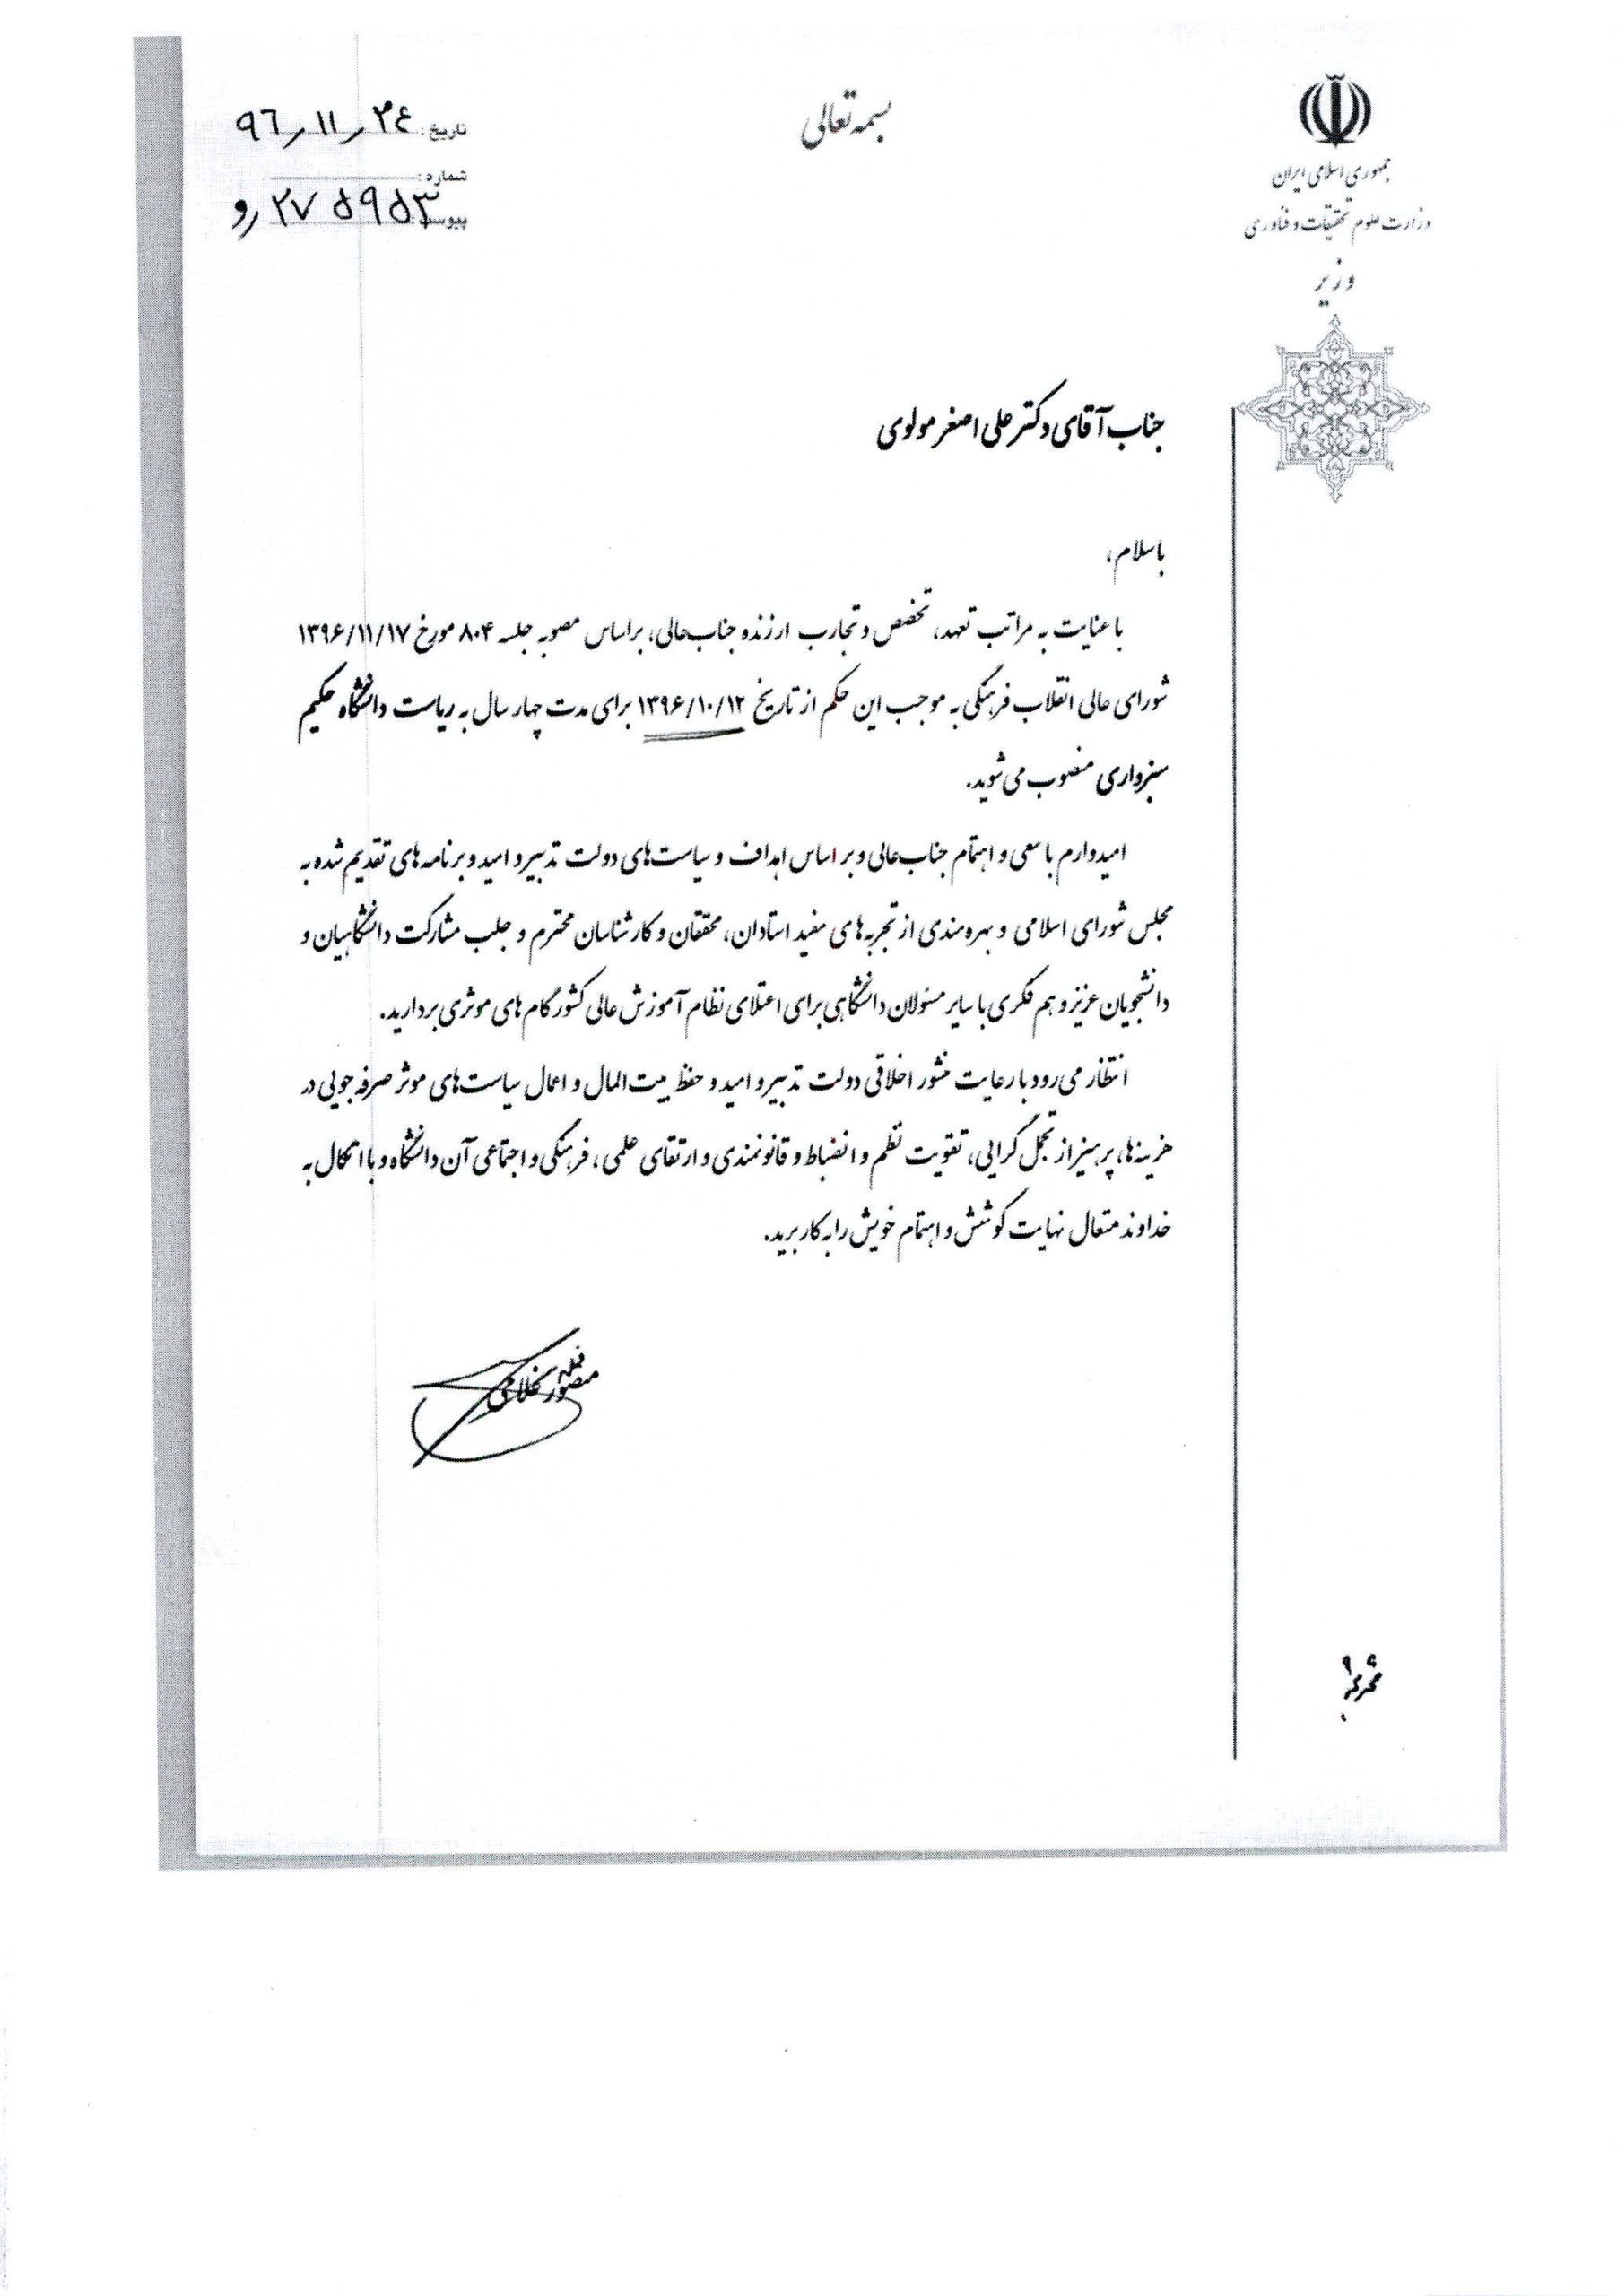 بسمه تعالی
جمهوری اسلامی ایران
وزارت علوم تحقیقات و فناوری
وزیر
تاریخ: ۹۶/۱۱/۲۴
شماره:
پیوست: ۲۷۵۹۵۳/و
جناب آقای دکتر علی اصغر مولوی
با سلام،
با عنایت به مراتب تعهد، تخصص و تجارب ارزنده جناب‌عالی، براساس مصوبه جلسه ۸۰۴ مورخ ۱۳۹۶/۱۱/۱۷
شورای عالی انقلاب فرهنگی به موجب این حکم از تاریخ ۱۳۹۶/۱۰/۱۲ برای مدت چهار سال به ریاست دانشگاه حکیم
سبزواری منصوب می‌شوید.
امیدوارم با سعی و اهتمام جناب‌عالی و بر اساس اهداف و سیاست‌های دولت تدبیر و امید و برنامه‌های تقدیم شده به
مجلس شورای اسلامی و بهره‌مندی از تجربه‌های مفید استادان، محققان و کارشناسان محترم و جلب مشارکت دانشگاهیان و
دانشجویان عزیز و هم فکری با سایر مسئولان دانشگاهی برای اعتلای نظام آموزش عالی کشور گام های موثری بردارید.
انتظار می‌رود با رعایت منشور اخلاقی دولت تدبیر و امید و حفظ بیت المال و اعمال سیاست‌های موثر صرفه جویی در
هزینه‌ها، پرهیز از تجمل گرایی، تقویت نظم و انضباط و قانونمندی و ارتقای علمی، فرهنگی و اجتماعی آن دانشگاه و با اتکال به
خداوند متعال نهایت کوشش و اهتمام خویش را به کار برید.
منصور غلامی